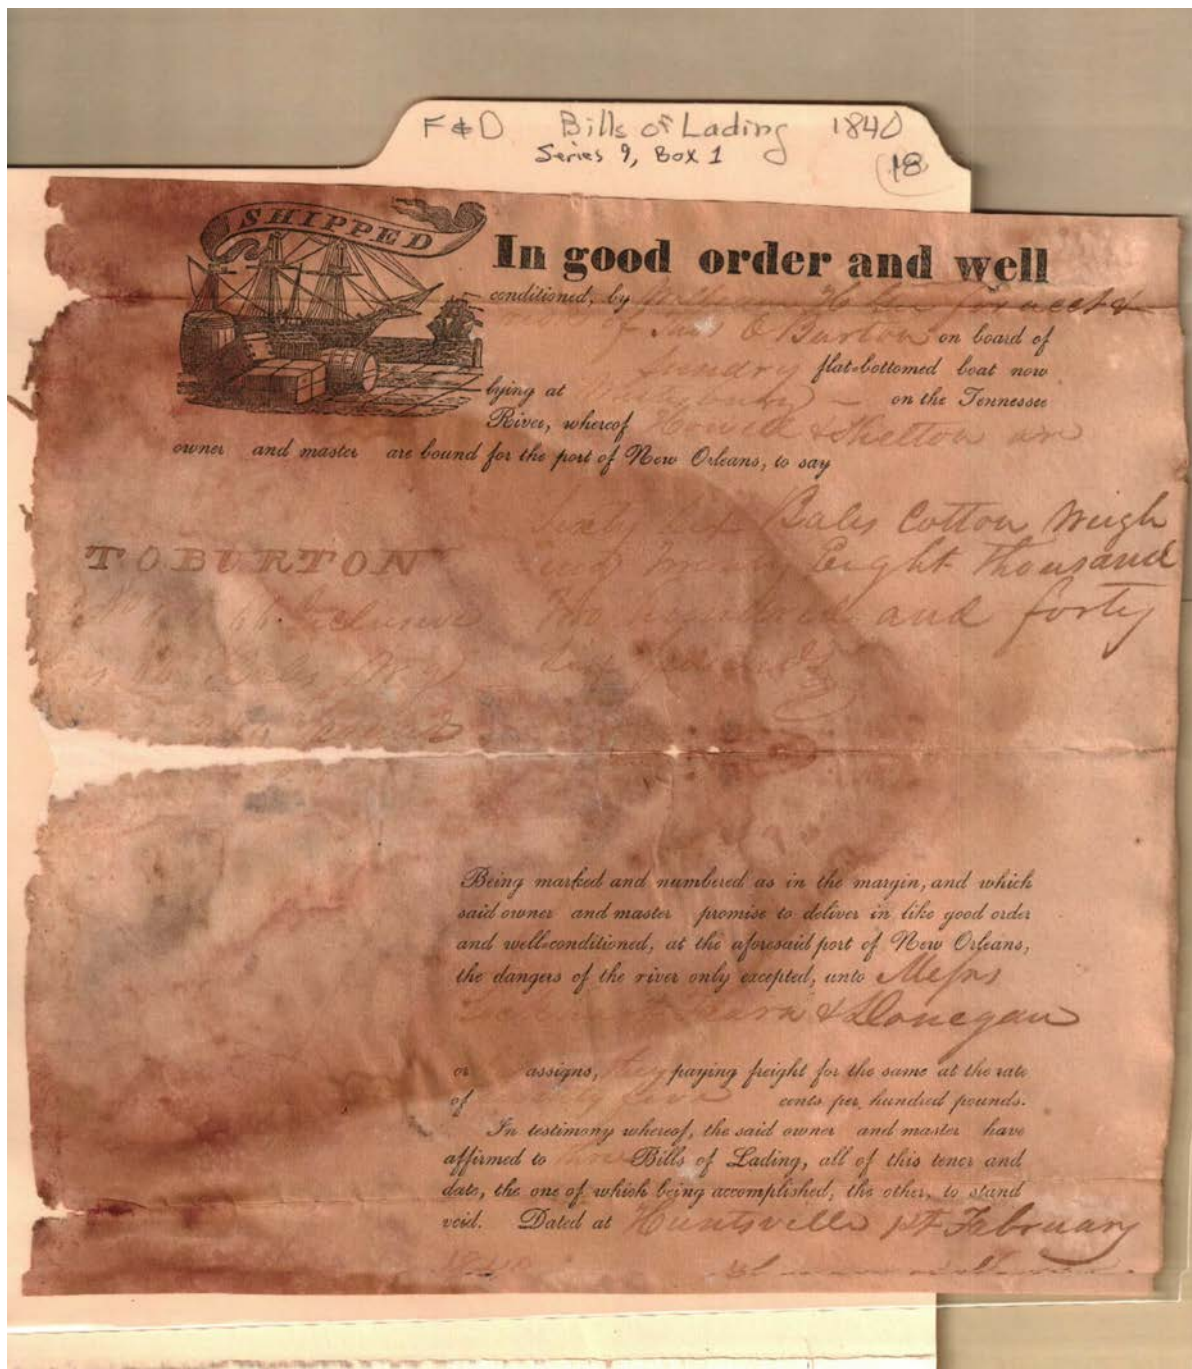 F & D Bills of Lading 1840
Series 9, Box 1
18
SHIPPED
In good order and well
conditioned, by for acct &
of O Burton on board of
Sundry flat-bottomed boat now
lying at on the Tennessee
River, whereof Howell & Shelton are
owner and master are bound for the port of New Orleans, to say
Sixty six Bales Cotton Weigh
T O BURTON
Eight thousand
Inclusive Two hundred and forty
Bales six pounds
Being marked and numbered as in the margin, and which
said owner and master promise to deliver in like good order
and well-conditioned, at the aforesaid port of New Orleans,
the dangers of the river only excepted, unto Messrs
& Donegan
or assigns, they paying freight for the same at the rate
of five cents per hundred pounds.
In testimony whereof, the said owner and master have
affirmed to three Bills of Lading, all of this tener and
date, the one of which being accomplished, the other, to stand
void. Dated at Huntsville 1st February
1840